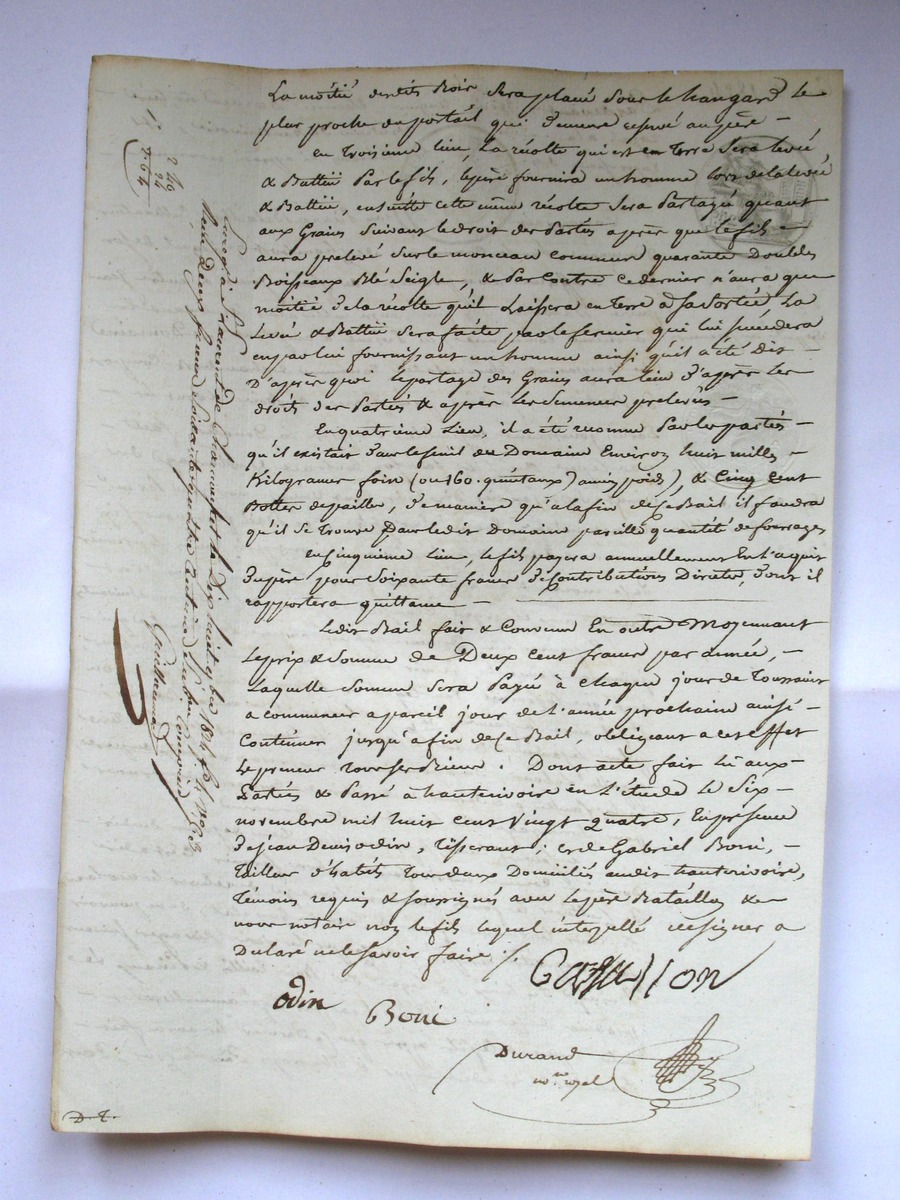 La moitié desdits Bois Sera placé Sous le hangard Le
plus proche du portail qui demeure reservé au père —
en troisieme lieu, La récolte qui est en Terre Sera levée
& Battüe Par le fils, le père fournira un homme lors de la levée
& Battüe, ensuitte cette même récolte Sera Partagé quant
aux Grains Suivant le droit des Partés après que le fils —
aura prelevé Sur le monceau commun quarante Doubles
Boisseaux Blé Seigle, & Par Contre ce dernier n'aura que
moitié de la récolte quil Laissera en terre a Sa Sortée La
Levé & Battüe Sera faite par le fermier qui lui succédera
en par lui fournissant un homme ainsi qu'il a été Dit —
D'après quoi le partage des Grains aura lieu d'après les
droits des Partés & après les Semences prelevés —
En quatrieme Lieu, il a été reconnu Par les partés —
qu'il existait Sur le fenil du Domaine Environ huit mille —
Kilogrames foin (ou 160. quintaux) ancien poids), & Cinq Cent
Bottes de paille, de maniere qu'a la fin de ce Bail il faudra
qu'il Se Trouve Dans ledit Domaine pareille quantité de fourrages
en Cinquieme lieu, le fils payera annuellement En l'acquit
du père pour Soixante francs de Contributions Directes, dont il
rapportera quittance —
Ledit Bail fait & Convenu En outre Moyennant
Le prix & Somme de Deux Cent francs par année, —
Laquelle Somme Sera Payé à Chaque jour de Toussaint
a commencer a pareil jour de l'année prochaine ainsi —
Continuer jusqu'a fin de Ce Bail, obligeant a cet effet
Le preneur tous Ses Biens. Dont acte fait lu aux —
Partés & Passé à hauterivoire en l'étude le Six —
novembre mil huit Cent Vingt quatre, En presence
de jean Denis odin, Tisserant, et de Gabriel Boni, —
Tailleur d'habits Tous deux Domiciliés audit hauterivoire,
Témoins requis & Soussignés avec le père Bataillon & —
nous notaire non le fils lequel interpellé de signer a
Declaré ne le Savoir faire ./.
Bataillon
odin
Boni
Durand
nore royal
D.T.
2 40
24
2.64
Enregistré à St Laurent de Chamousset le Dix huit 9bre 1824
Reçu Deux francs Soixante quatre Centimes